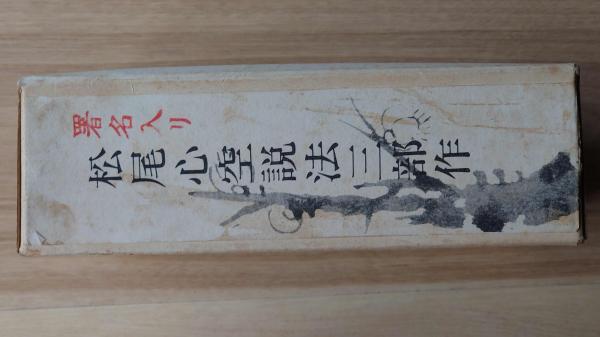 署名入り
松尾心空説法三部作